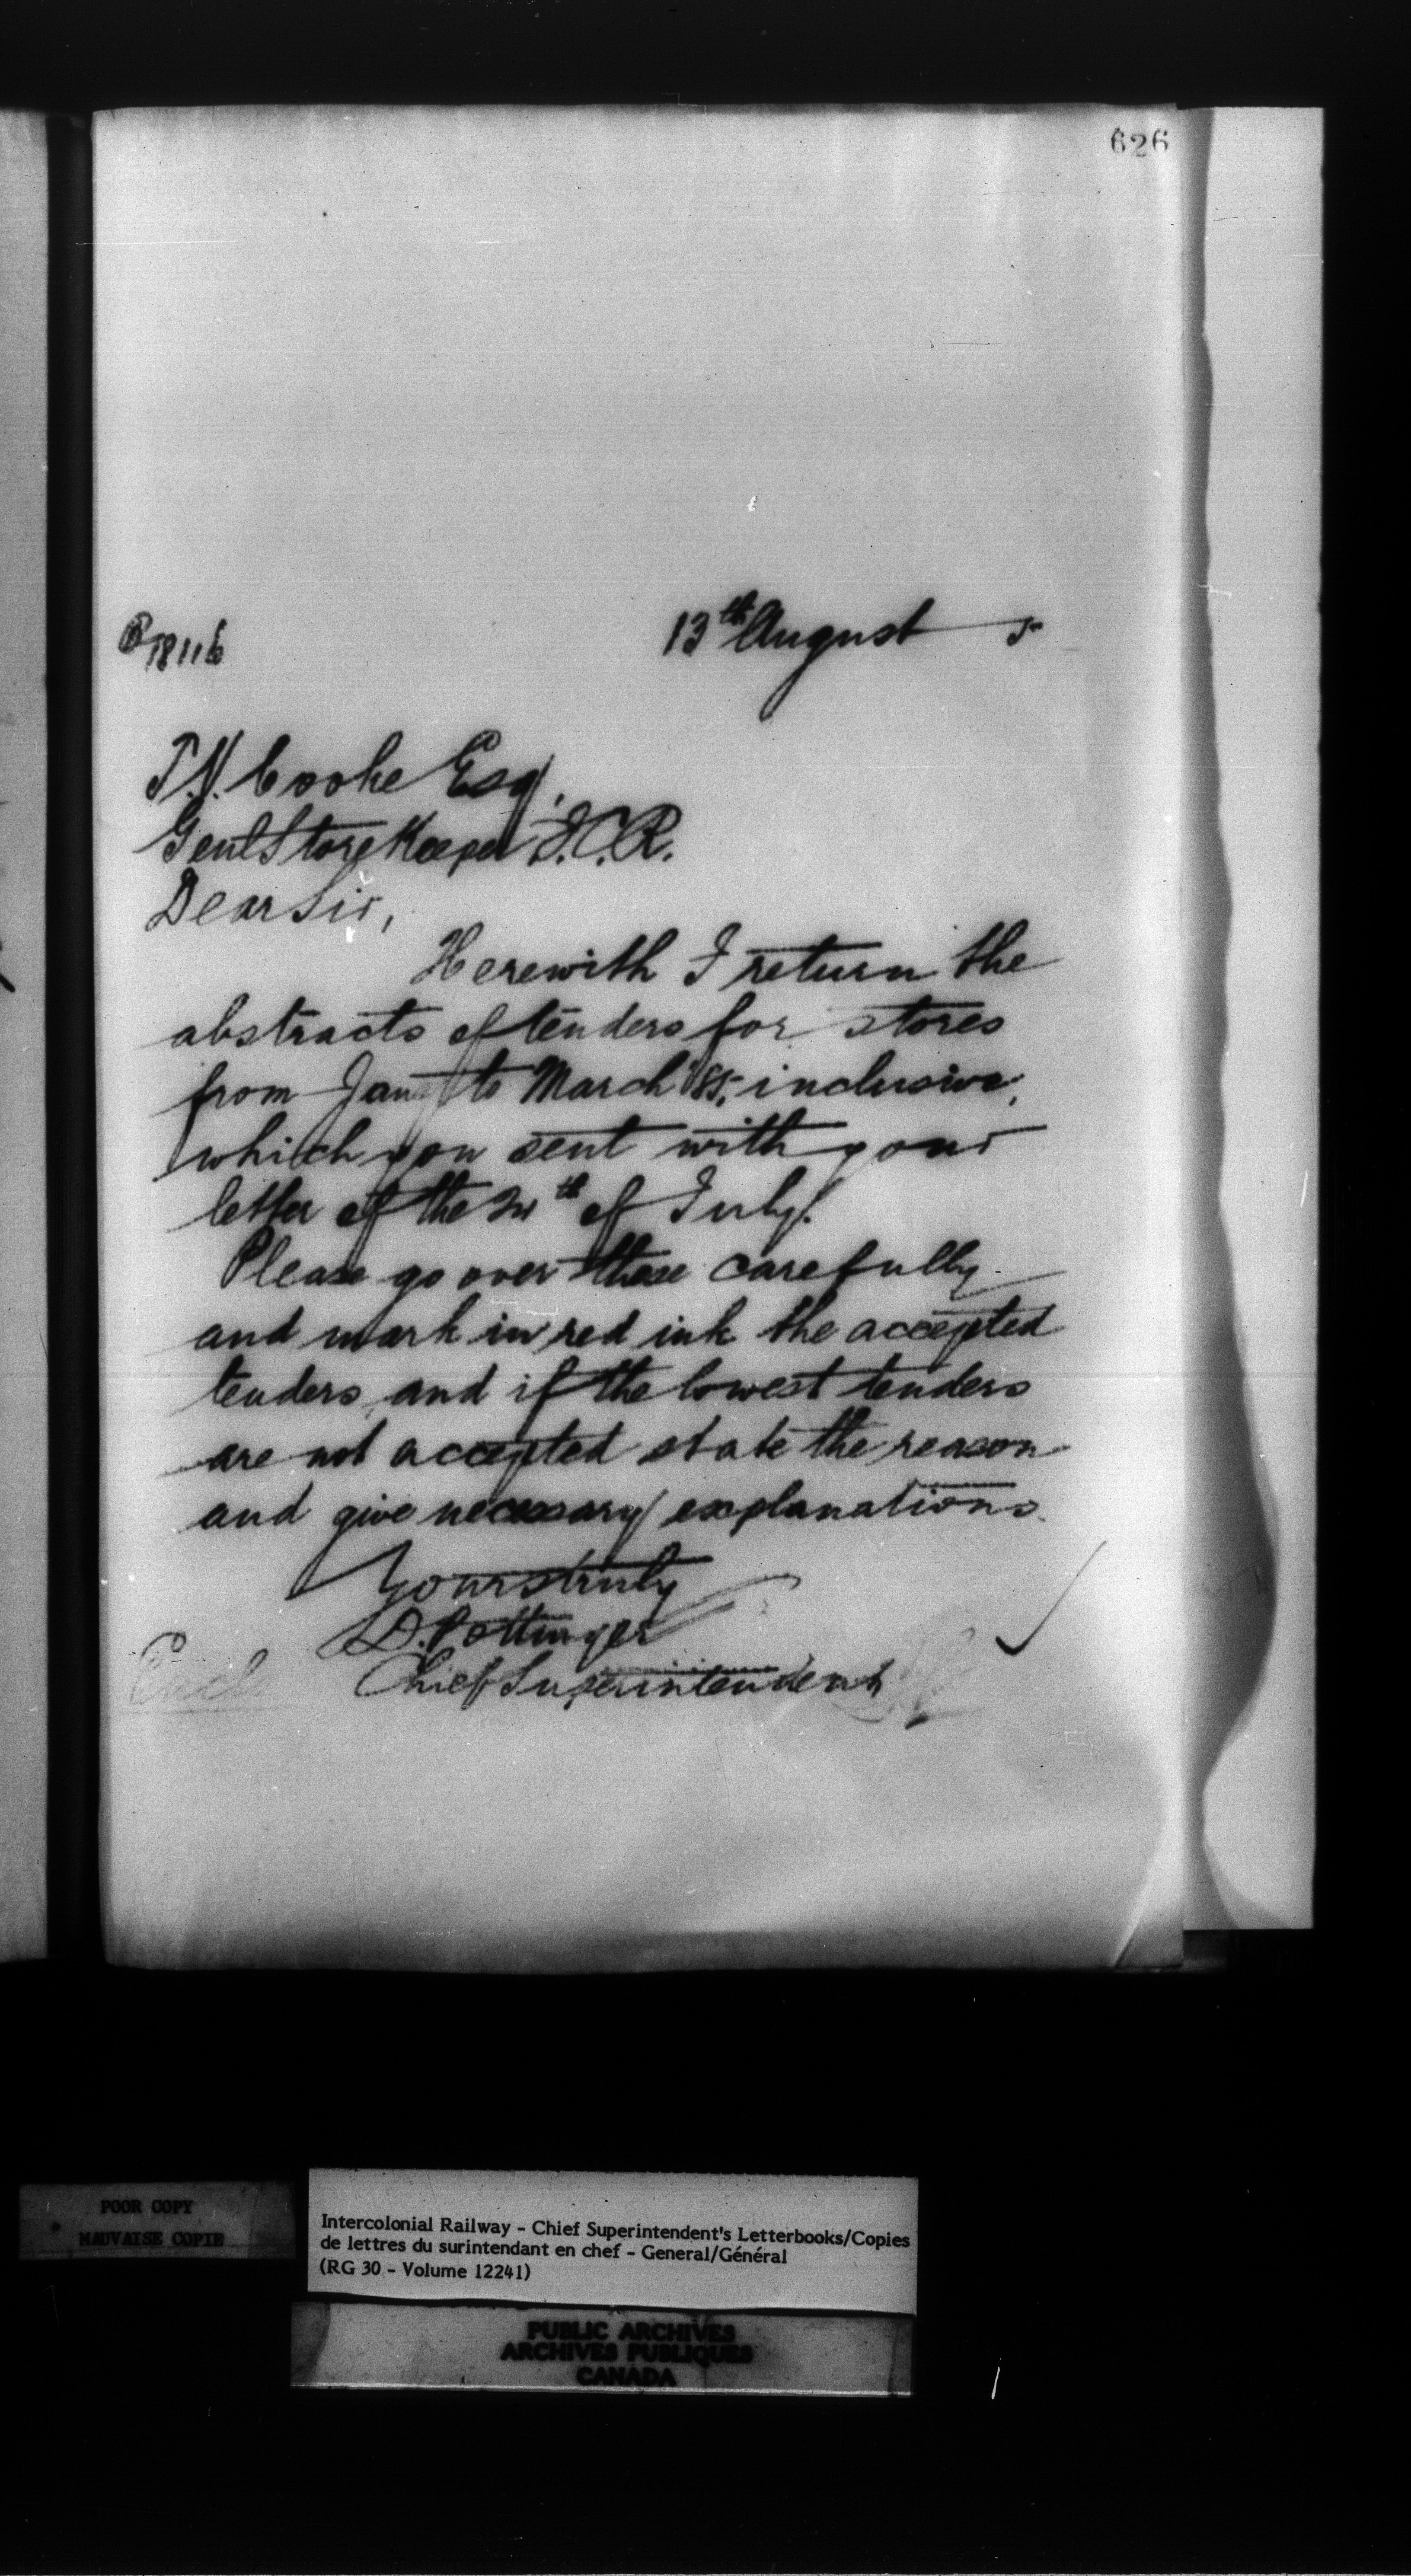 626
18116
13th August 5
T.V. Cooke Esq,
Genl Store Keeper I.C.R.
Dear Sir,
Herewith I return the
abstracts of tenders for stores
from Jany to March '85, inclusive,
which you sent with your
letter of the of July.
Please go over these carefully
and mark in red ink the accepted
tenders, and if the lowest tenders
are not accepted state the reason
and give necessary explanations.
Yours truly
D. Pottinger
Chief Superintendent
Encls
POOR COPY
MAUVAISE COPIE
Intercolonial Railway - Chief Superintendent's Letterbooks/Copies
de lettres du surintendant en chef - General/Général
(RG 30 - Volume 12241)
PUBLIC ARCHIVES
ARCHIVES PUBLIQUES
CANADA